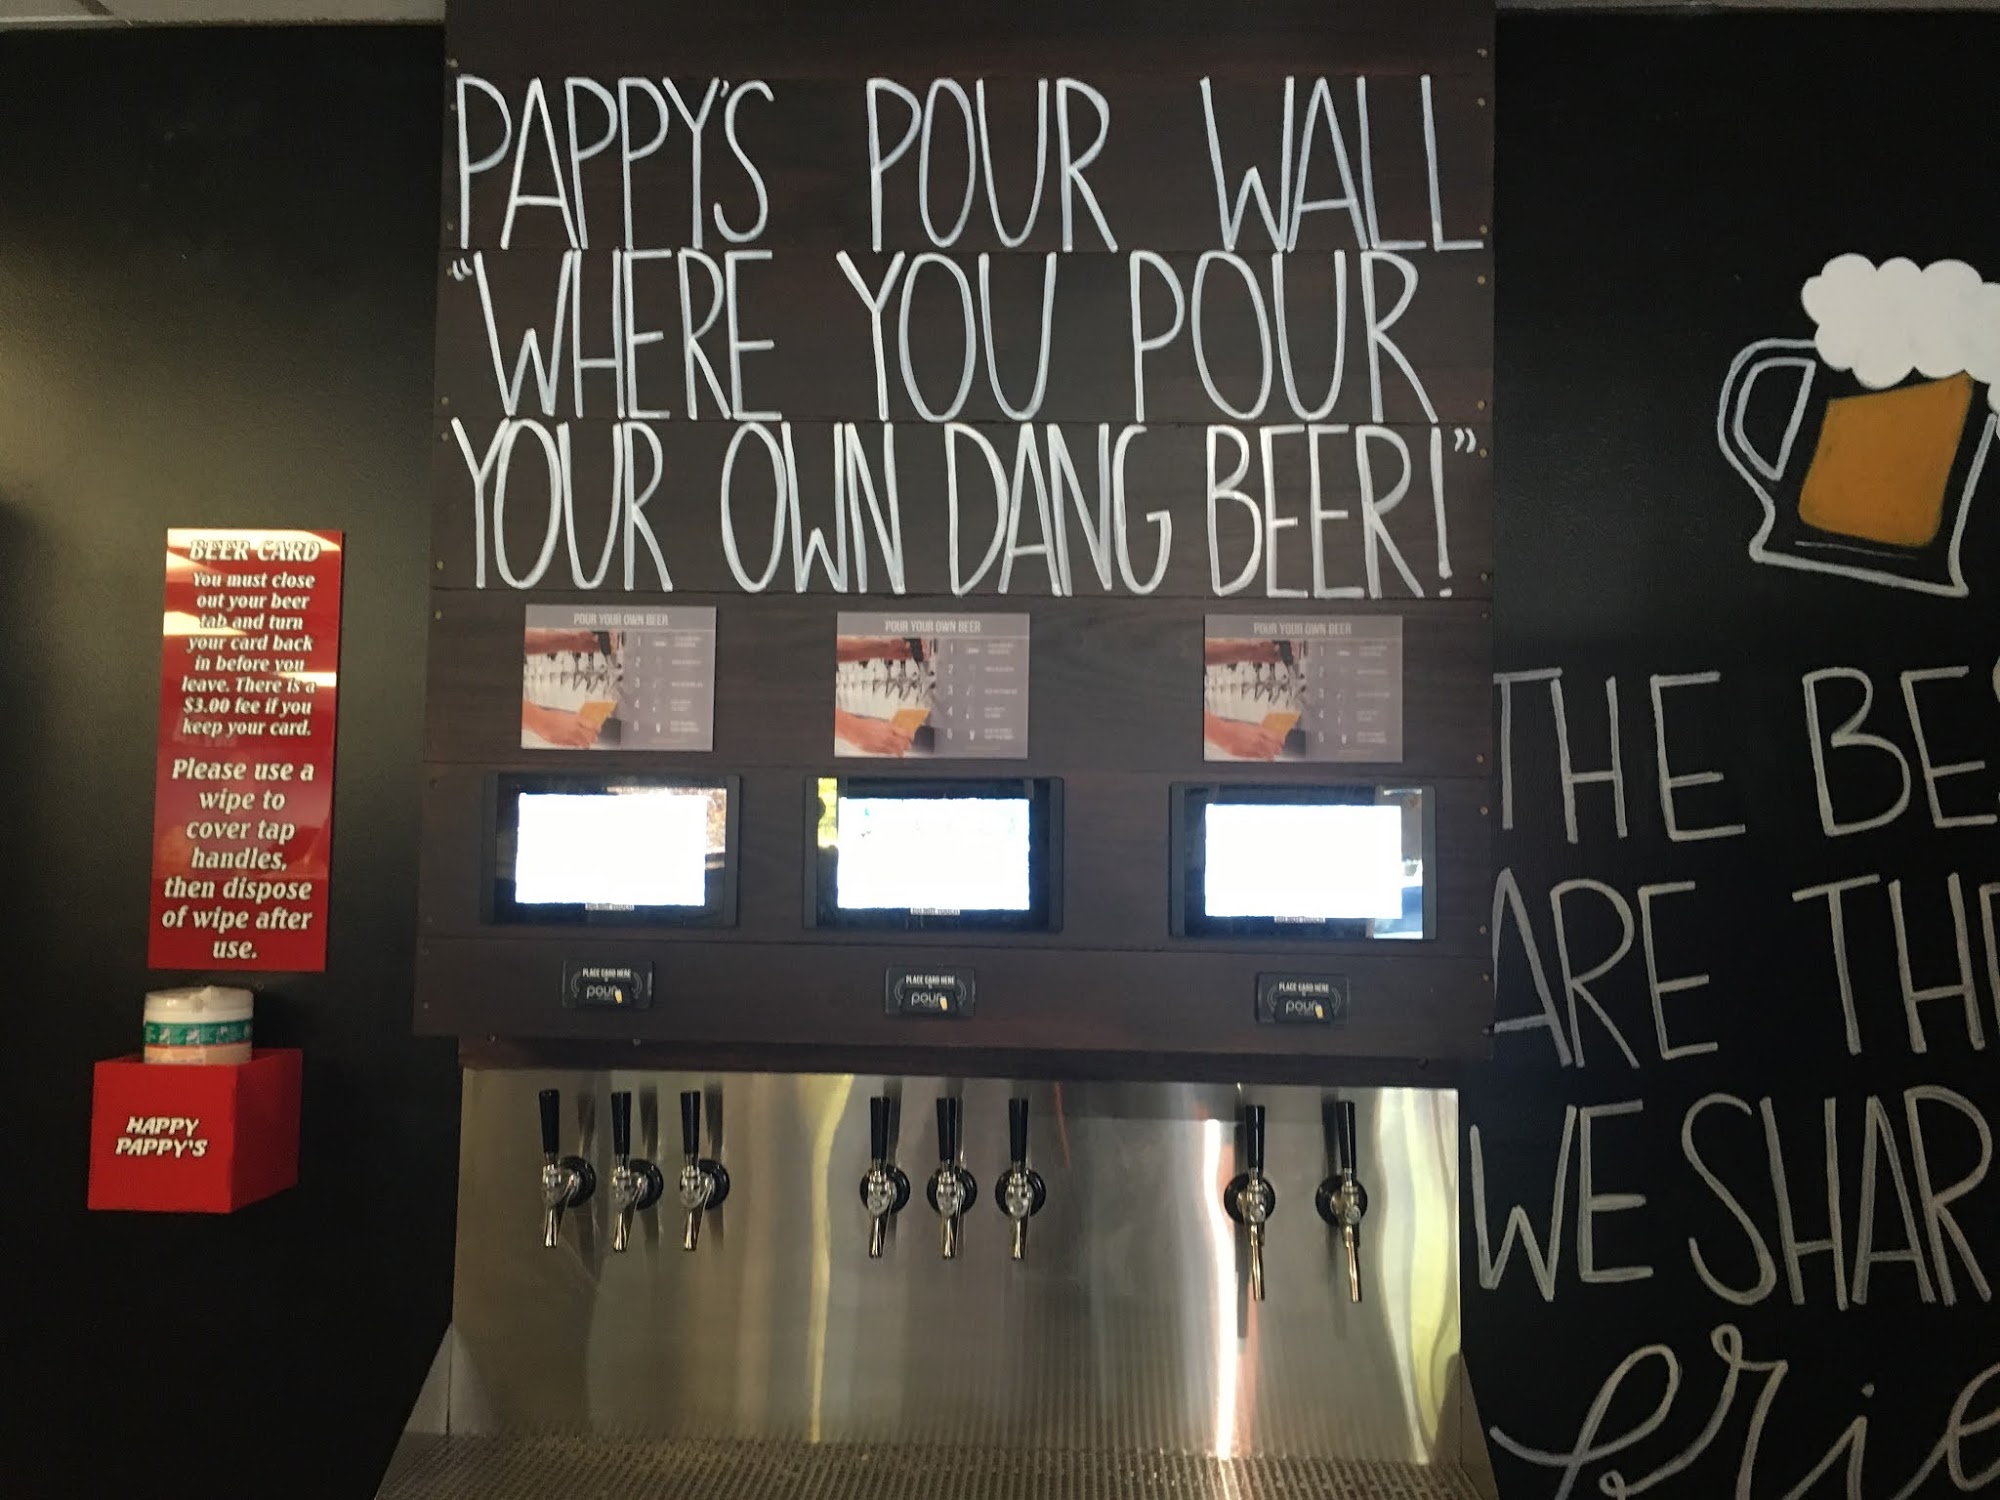 PAPPY'S POUR WALL
"WHERE YOU POUR
YOUR OWN DANG BEER!"
BEER CARD
You must close
out your beer
tab and turn
your card back
in before you
leave. There is a
$3.00 fee if you
keep your card.
Please use a
wipe to
cover tap
handles,
then dispose
of wipe after
use.
HAPPY
PAPPY'S
POUR YOUR OWN BEER
1
2
3
4
5
POUR YOUR OWN BEER
1
2
3
4
5
POUR YOUR OWN BEER
1
2
3
4
5
PLACE CARD HERE
pour
PLACE CARD HERE
pour
PLACE CARD HERE
pour
THE BE
ARE TH
WE SHAR